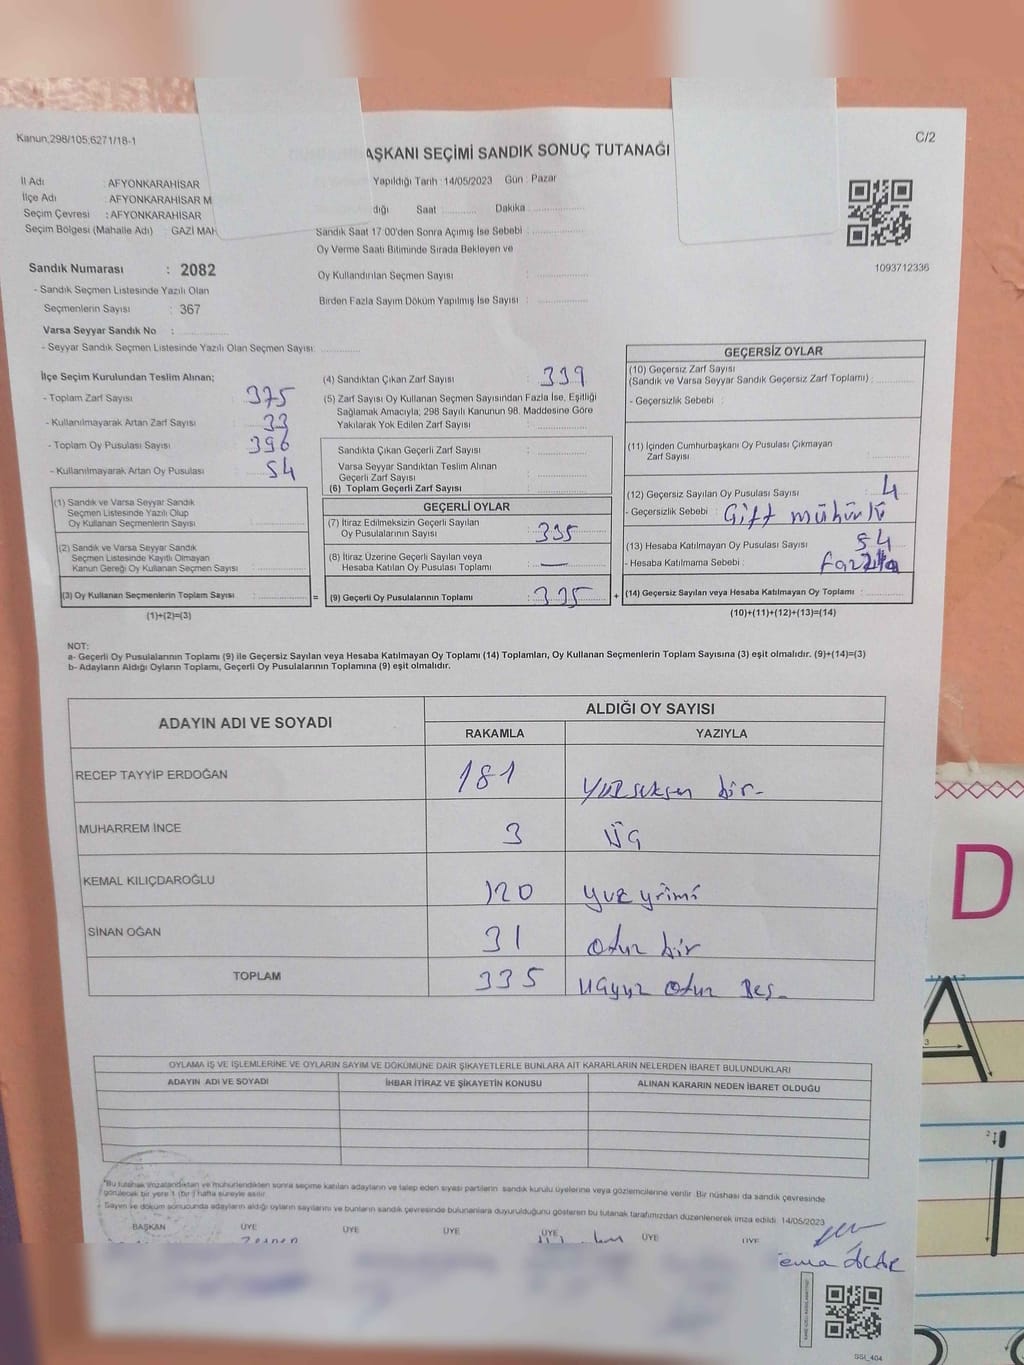 Kanun;298/105;6271/18-1
C/2
AŞKANI SEÇİMİ SANDIK SONUÇ TUTANAĞI
İl Adı : AFYONKARAHİSAR
İlçe Adı : AFYONKARAHİSAR M
Seçim Çevresi : AFYONKARAHİSAR
Seçim Bölgesi (Mahalle Adı) GAZİ MAH
Yapıldığı Tarih : 14/05/2023 Gün : Pazar
dığı Saat Dakika
Sandık Saat 17:00'den Sonra Açımış İse Sebebi :
Oy Verme Saati Bitiminde Sırada Bekleyen ve
Oy Kullandırılan Seçmen Sayısı :
Birden Fazla Sayım Döküm Yapılmış İse Sayısı :
1093712336
Sandık Numarası : 2082
- Sandık Seçmen Listesinde Yazılı Olan
Seçmenlerin Sayısı : 367
Varsa Seyyar Sandık No :
- Seyyar Sandık Seçmen Listesinde Yazılı Olan Seçmen Sayısı:
İlçe Seçim Kurulundan Teslim Alınan;
- Toplam Zarf Sayısı : 375
- Kullanılmayarak Artan Zarf Sayısı : 33
- Toplam Oy Pusulası Sayısı : 396
- Kullanılmayarak Artan Oy Pusulası : 54
(1) Sandık ve Varsa Seyyar Sandık
Seçmen Listesinde Yazılı Olup
Oy Kullanan Seçmenlerin Sayısı :
(2) Sandık ve Varsa Seyyar Sandık
Seçmen Listesinde Kayıtlı Olmayan
Kanun Gereği Oy Kullanan Seçmen Sayısı :
(3) Oy Kullanan Seçmenlerin Toplam Sayısı : =
(1)+(2)=(3)
(4) Sandıktan Çıkan Zarf Sayısı : 339
(5) Zarf Sayısı Oy Kullanan Seçmen Sayısından Fazla İse, Eşitliği
Sağlamak Amacıyla; 298 Sayılı Kanunun 98. Maddesine Göre
Yakılarak Yok Edilen Zarf Sayısı :
Sandıkta Çıkan Geçerli Zarf Sayısı :
Varsa Seyyar Sandıktan Teslim Alınan
Geçerli Zarf Sayısı :
(6) Toplam Geçerli Zarf Sayısı :
GEÇERLİ OYLAR
(7) İtiraz Edilmeksizin Geçerli Sayılan
Oy Pusulalarının Sayısı : 335
(8) İtiraz Üzerine Geçerli Sayılan veya
Hesaba Katılan Oy Pusulası Toplamı : —
(9) Geçerli Oy Pusulalarının Toplamı : 335 +
GEÇERSİZ OYLAR
(10) Geçersiz Zarf Sayısı
(Sandık ve Varsa Seyyar Sandık Geçersiz Zarf Toplamı) :
- Geçersizlik Sebebi :
(11) İçinden Cumhurbaşkanı Oy Pusulası Çıkmayan
Zarf Sayısı :
(12) Geçersiz Sayılan Oy Pusulası Sayısı : 4
- Geçersizlik Sebebi : Çift mühürlü
(13) Hesaba Katılmayan Oy Pusulası Sayısı : 54
- Hesaba Katılmama Sebebi :
(14) Geçersiz Sayılan veya Hesaba Katılmayan Oy Toplamı :
(10)+(11)+(12)+(13)=(14)
NOT:
a- Geçerli Oy Pusulalarının Toplamı (9) ile Geçersiz Sayılan veya Hesaba Katılmayan Oy Toplamı (14) Toplamları, Oy Kullanan Seçmenlerin Toplam Sayısına (3) eşit olmalıdır. (9)+(14)=(3)
b- Adayların Aldığı Oyların Toplamı, Geçerli Oy Pusulalarının Toplamına (9) eşit olmalıdır.
ADAYIN ADI VE SOYADI
ALDIĞI OY SAYISI
RAKAMLA YAZIYLA
RECEP TAYYİP ERDOĞAN 181 yüzseksen bir-
MUHARREM İNCE 3 Üç
KEMAL KILIÇDAROĞLU 120 yüz yirmi
SİNAN OĞAN 31 otuz bir
TOPLAM 335 üçyüz otuz beş-
OYLAMA İŞ VE İŞLEMLERİNE VE OYLARIN SAYIM VE DÖKÜMÜNE DAİR ŞİKAYETLERLE BUNLARA AİT KARARLARIN NELERDEN İBARET BULUNDUKLARI
ADAYIN ADI VE SOYADI İHBAR İTİRAZ VE ŞİKAYETİN KONUSU ALINAN KARARIN NEDEN İBARET OLDUĞU
*Bu tutanak imzalandıktan ve mühürlendikten sonra seçime katılan adayların ve talep eden siyasi partilerin sandık kurulu üyelerine veya gözlemcilerine verilir. Bir nüshası da sandık çevresinde
görülecek bir yere 1 (bir) hafta süreyle asılır.
- Sayım ve döküm sonucunda adayların aldığı oyların sayılarını ve bunların sandık çevresinde bulunanlara duyurulduğunu gösteren bu tutanak tarafımızdan düzenlenerek imza edildi. 14/05/2023
BAŞKAN ÜYE ÜYE ÜYE ÜYE ÜYE ÜYE
ema ACAR
SSI_404
D
A
3
2
1